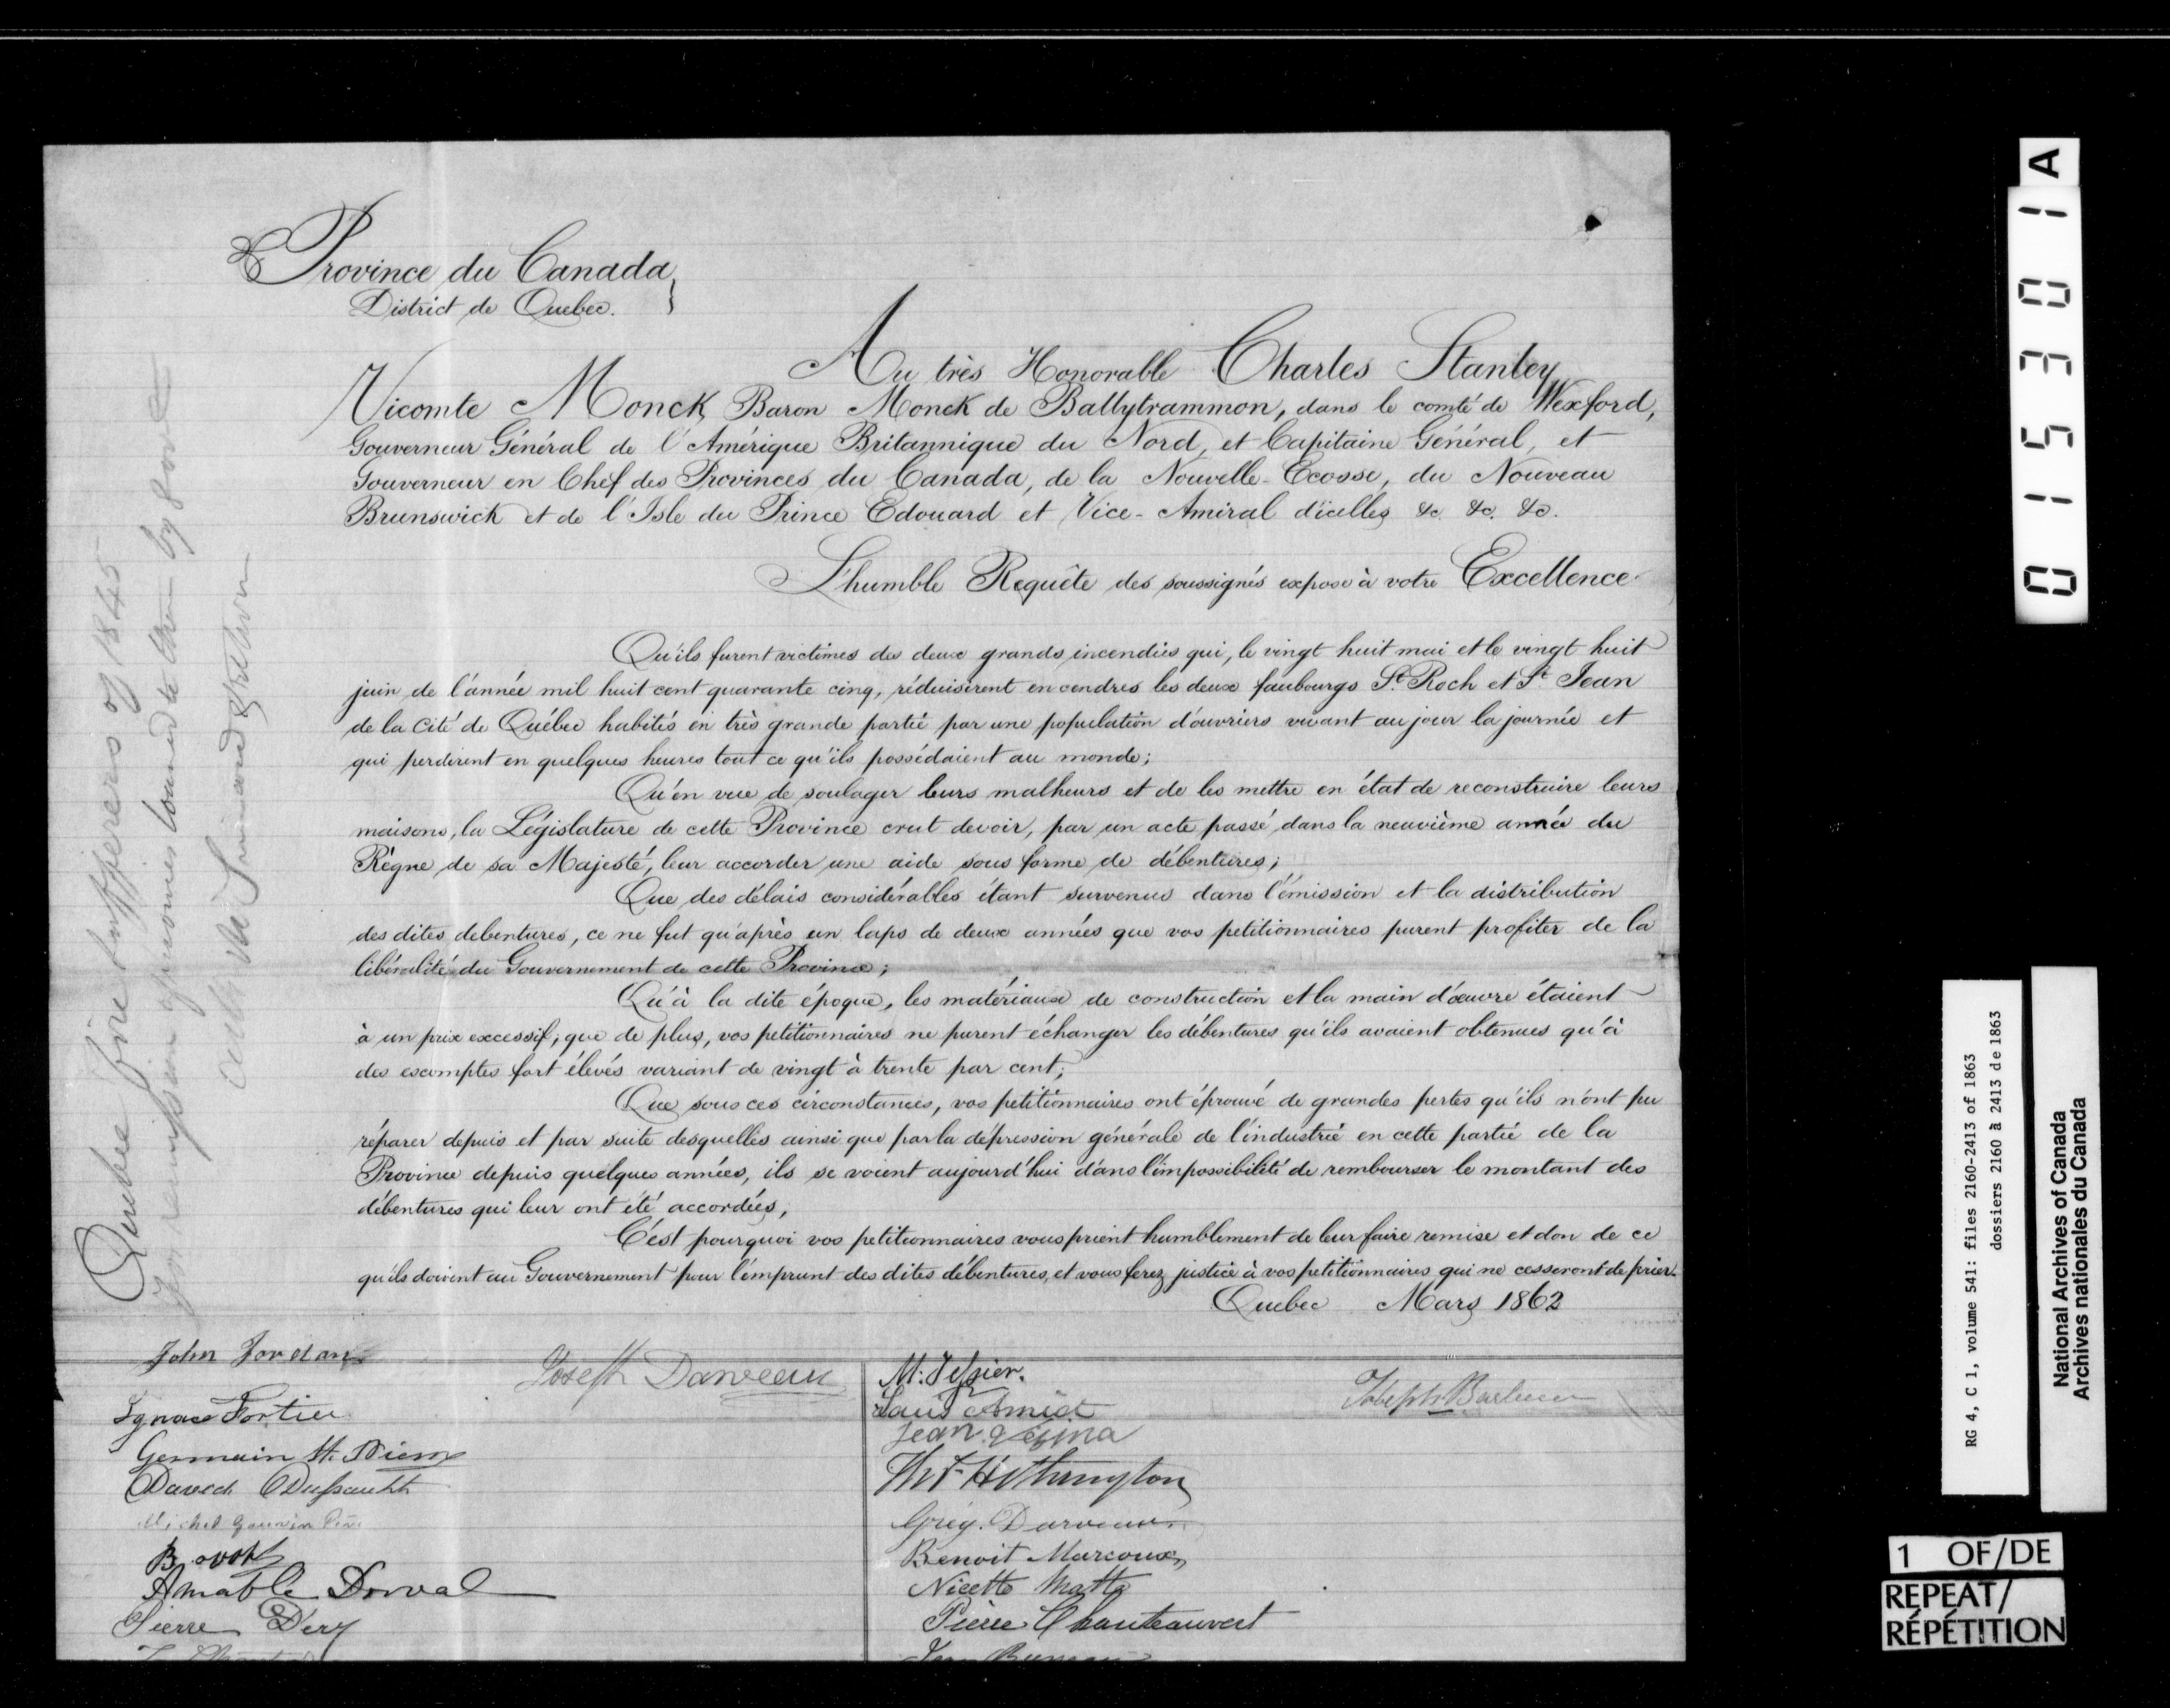 Province du Canada }
District de Quebec.
Au très Honorable Charles Stanley
Vicomte Monck, Baron Monck de Ballytrammon, dans le comté de Wexford,
Gouverneur Général de l'Amérique Britannique du Nord, et Capitaine Général, et
Gouverneur en Chef des Provinces du Canada, de la Nouvelle-Ecosse, du Nouveau
Brunswick et de l'Isle du Prince Edouard et Vice-Amiral d'icelles &c. &c. &c.
L'humble Requête des soussignés expose à votre Excellence
Qu'ils furent victimes des deux grands incendies qui, le vingt huit mai et le vingt huit
juin de l'année mil huit cent quarante cinq, réduisirent en cendres les deux faubourgs St. Roch et St. Jean
de la Cité de Québec habités en très grande partie par une population d'ouvriers vivant au jour la journée et
qui perdirent en quelques heures tout ce qu'ils possédaient au monde;
Qu'en vue de soulager leurs malheurs et de les mettre en état de reconstruire leurs
maisons, la Législature de cette Province crut devoir, par un acte passé dans la neuvième année du
Règne de sa Majesté, leur accorder une aide sous forme de débentures;
Que des délais considérables étant survenus dans l'émission et la distribution
des dites debentures, ce ne fut qu'après un laps de deux années que vos petitionnaires purent profiter de la
libéralité du Gouvernement de cette Province;
Qu'à la dite époque, les matériaux de construction et la main d'œuvre étaient
à un prix excessif; que de plus, vos petitionnaires ne purent échanger les débentures qu'ils avaient obtenues qu'à
des escomptes fort élevés variant de vingt à trente par cent;
Que sous ces circonstances, vos petitionnaires ont éprouvé de grandes pertes qu'ils n'ont pu
réparer depuis et par suite desquelles ainsi que par la dépression générale de l'industrie en cette partie de la
Province depuis quelques années, ils se voient aujourd'hui dans l'impossibilité de rembourser le montant des
débentures qui leur ont été accordées,
C'est pourquoi vos petitionnaires vous prient humblement de leur faire remise et don de ce
qu'ils doivent au Gouvernement pour l'emprunt des dites débentures, et vous ferez justice à vos petitionnaires qui ne cesseront de prier.
Quebec Mars 1862
Quebec fire sufferers of 1845
for remission of monies loaned to them by govt
John Jordan
Joseph Darveau
M. Tessier.
Ignace Fortier
Louis Amiot
Jean Vezina
Germain St. Pierre
David Dussault
Thos Hethrington
Michel Gauvin Père
Grég. Darveau
Benoit Marcoux
Amable Dorval
Nicette Matte
Pierre Dery
Pierre Chauteauvert
0 1 5 3 0 1 A
RG 4, C 1, volume 541: files 2160-2413 of 1863
dossiers 2160 à 2413 de 1863
National Archives of Canada
Archives nationales du Canada
1 OF/DE
REPEAT/
RÉPÉTITION